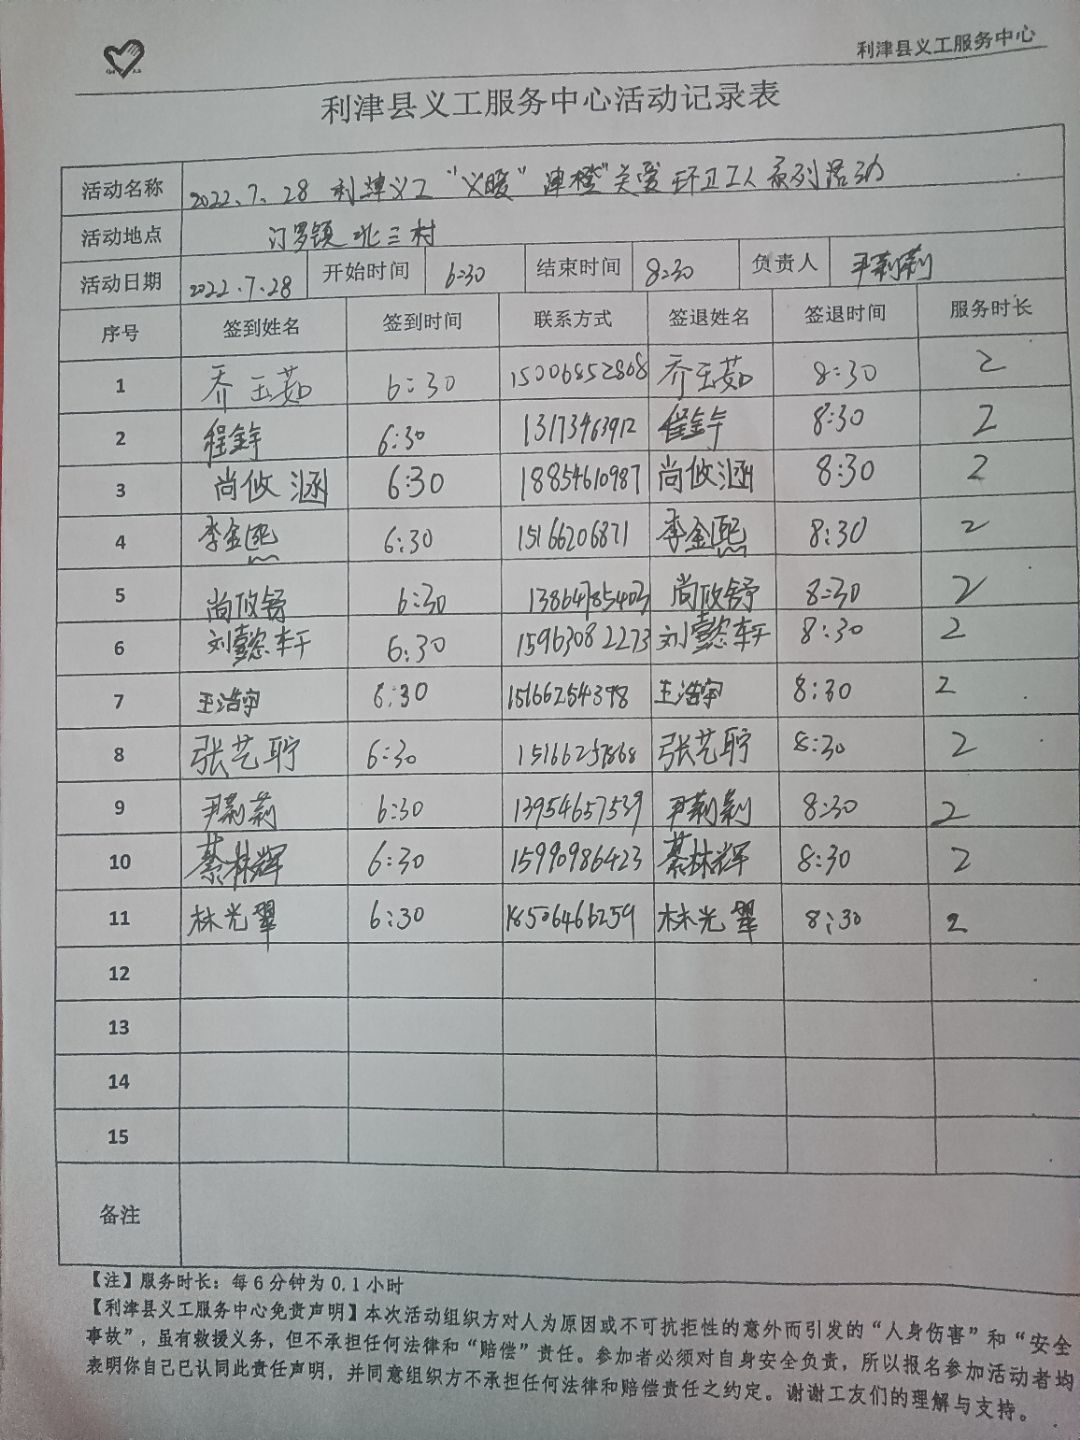 利津县义工服务中心
利津县义工服务中心活动记录表
活动名称 2022.7.28 利津义工“义暖”津橙“关爱环卫工人系列活动
活动地点 汀罗镇北三村
活动日期 2022.7.28 开始时间 6:30 结束时间 8:30 负责人 尹莉莉
序号 签到姓名 签到时间 联系方式 签退姓名 签退时间 服务时长
1 乔玉茹 6:30 15006852868 乔玉茹 8:30 2
2 程金宇 6:30 13173463912 程金宇 8:30 2
3 尚攸涵 6:30 18854610987 尚攸涵 8:30 2
4 李金熙 6:30 15166206871 李金熙 8:30 2
5 尚攸舒 6:30 13864785403 尚攸舒 8:30 2
6 刘懿轩 6:30 15963082273 刘懿轩 8:30 2
7 王浩宇 6:30 15166254398 王浩宇 8:30 2
8 张艺聍 6:30 张艺聍 8:30 2
9 尹莉莉 6:30 13954657539 尹莉莉 8:30 2
10 綦林辉 6:30 15990986423 綦林辉 8:30 2
11 林光翠 6:30 18506466259 林光翠 8:30 2
12
13
14
15
备注
【注】服务时长：每6分钟为0.1小时
【利津县义工服务中心免责声明】本次活动组织方对人为原因或不可抗拒性的意外而引发的“人身伤害”和“安全
事故”，虽有救援义务，但不承担任何法律和“赔偿”责任。参加者必须对自身安全负责，所以报名参加活动者均
表明你自己已认同此责任声明，并同意组织方不承担任何法律和赔偿责任之约定。谢谢工友们的理解与支持。